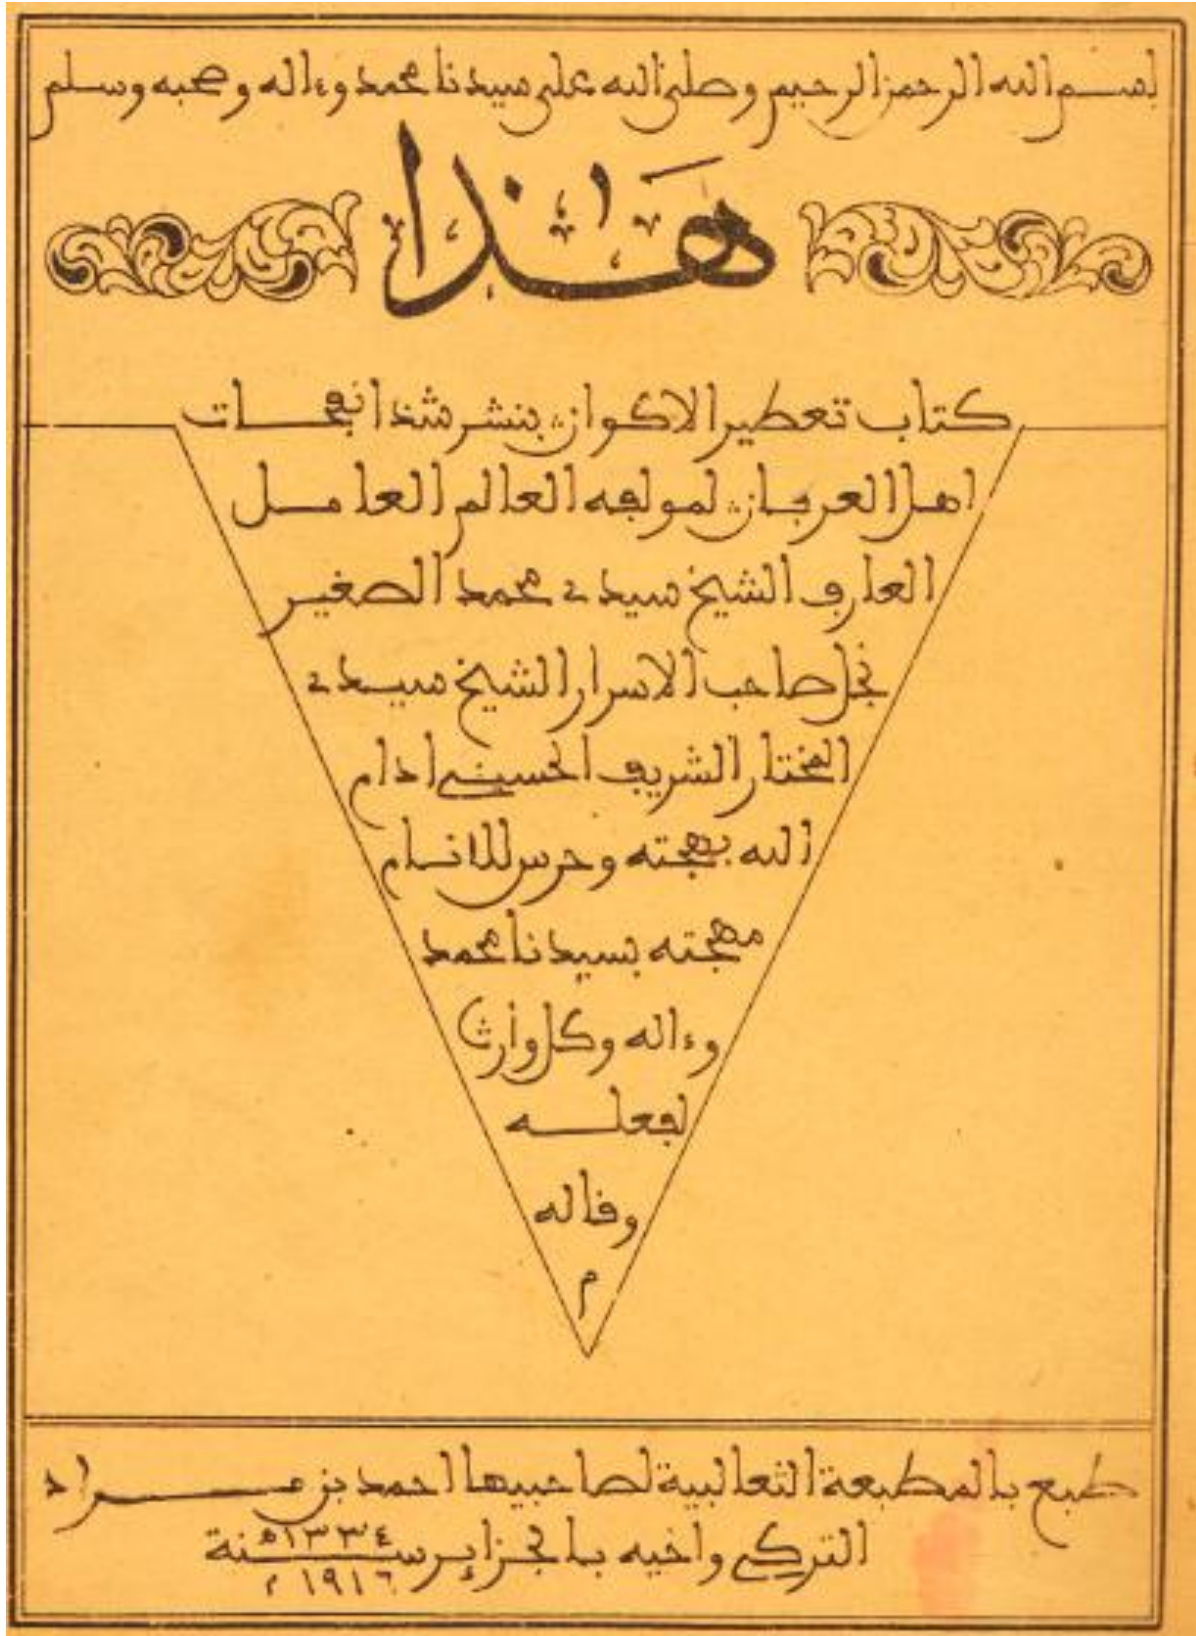 بسم الله الرحمن الرحيم وصلى الله على سيدنا محمد وءاله وصحبه وسلم
هَٰذا
كتاب تعطير الاكوان بنشر شذا نفحات
اهل العرفان لمولفه العالم العامل
العارف الشيخ سيدي محمد الصغير
نجل صاحب الاسرار الشيخ سيدي
المختار الشريف الحسني ادام
الله بهجته وحرس للانام
مهجته بسيدنا محمد
وءاله وكل وارث
لفعله
وقاله
م
طبع بالمطبعة الثعالبية لصاحبيها احمد بن مراد
التركي واخيه بالجزاير سنة ١٣٣٤ه
١٩١٦ م